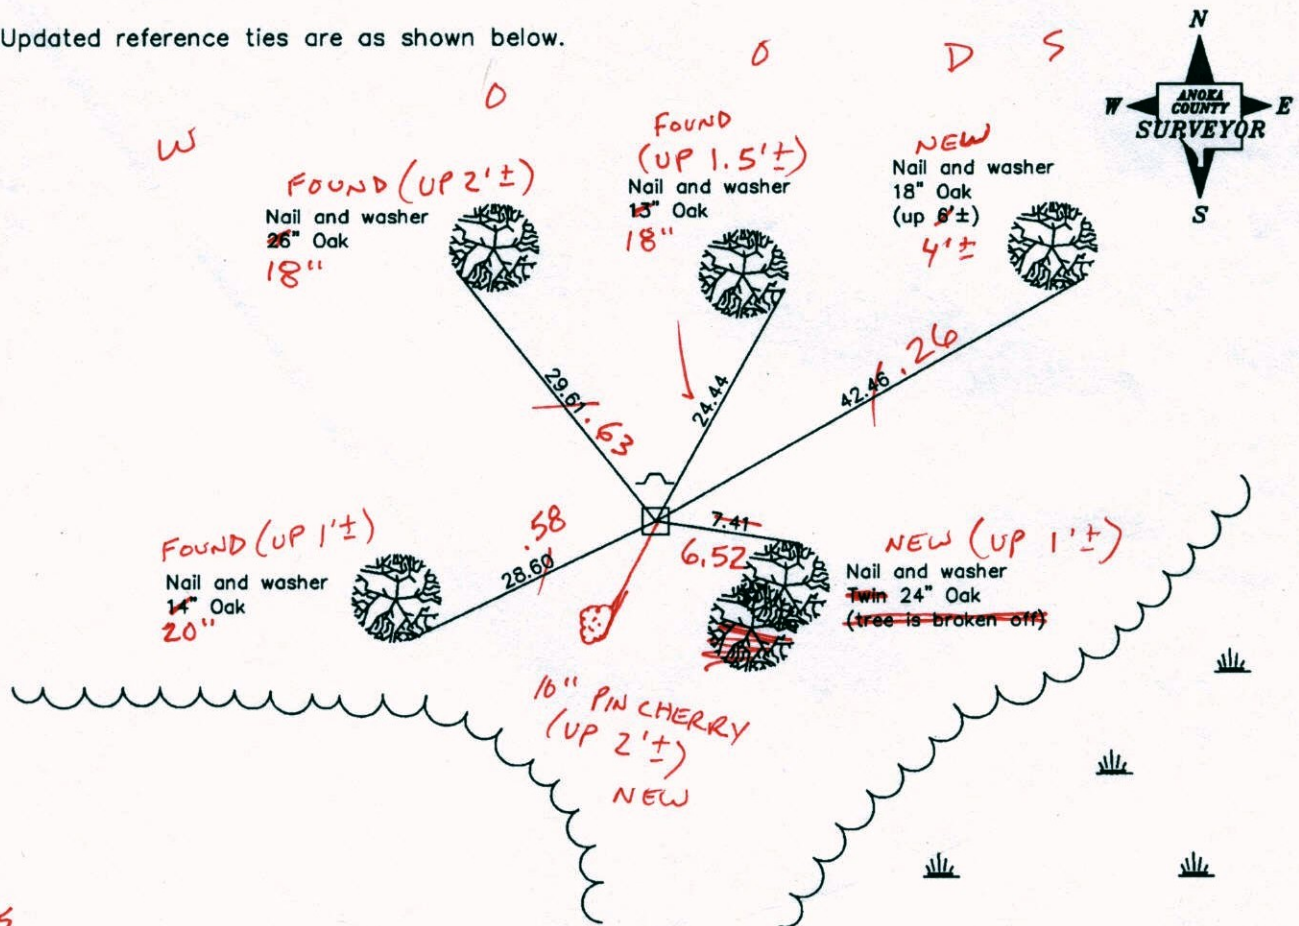 Updated reference ties are as shown below.
N
W E
ANOKA
COUNTY
SURVEYOR
S
W O O D S
FOUND (UP 2'±)
Nail and washer
26" Oak
18"
FOUND
(UP 1.5'±)
Nail and washer
13" Oak
18"
NEW
Nail and washer
18" Oak
(up 6'±)
4'±
29.61 .63
24.44
42.46 .26
FOUND (UP 1'±)
Nail and washer
14" Oak
20"
28.60 .58
7.41
6.52
NEW (UP 1'±)
Nail and washer
Twin 24" Oak
(tree is broken off)
10" PIN CHERRY
(UP 2'±)
NEW